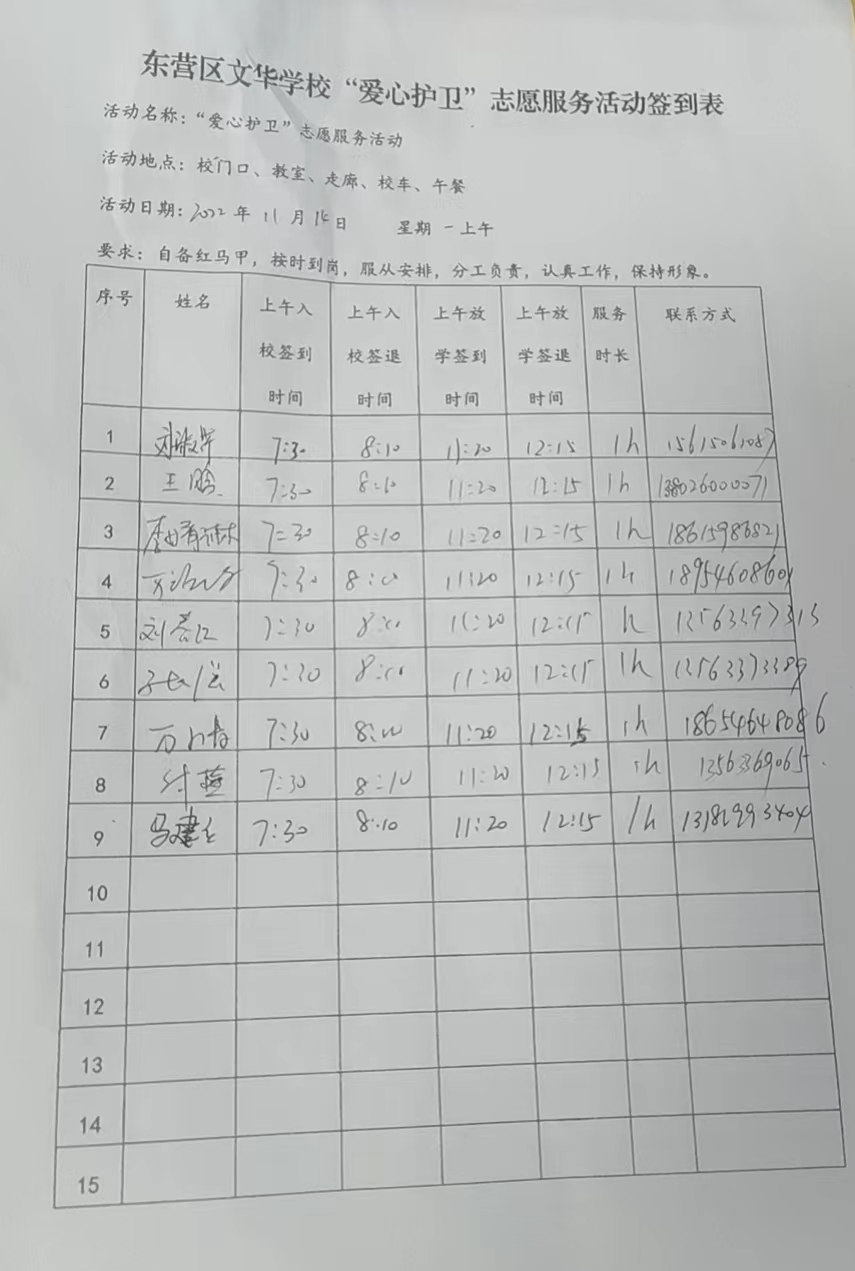 东营区文华学校“爱心护卫”志愿服务活动签到表
活动名称：“爱心护卫”志愿服务活动
活动地点：校门口、教室、走廊、校车、午餐
活动日期：2022年11月14日 星期一上午
要求：自备红马甲，按时到岗，服从安排，分工负责，认真工作，保持形象。
序号 姓名 上午入校签到时间 上午入校签退时间 上午放学签到时间 上午放学签退时间 服务时长 联系方式
1 7:30 8:10 11:20 12:15 1h 15615061087
2 王鹏 7:30 8:10 11:20 12:15 1h 13802600071
3 7:30 8:10 11:20 12:15 1h 18615986821
4 7:30 8:00 11:20 12:15 1h
5 刘春江 7:30 8:00 11:20 12:15 h 13563397313
6 7:30 8:00 11:20 12:15 1h 13563373389
7 7:30 8:00 11:20 12:15 1h 18654648086
8 付蕴 7:30 8:10 11:20 12:15 1h 13563369065
9 马建 7:30 8:10 11:20 12:15 1h 13181993404
10
11
12
13
14
15